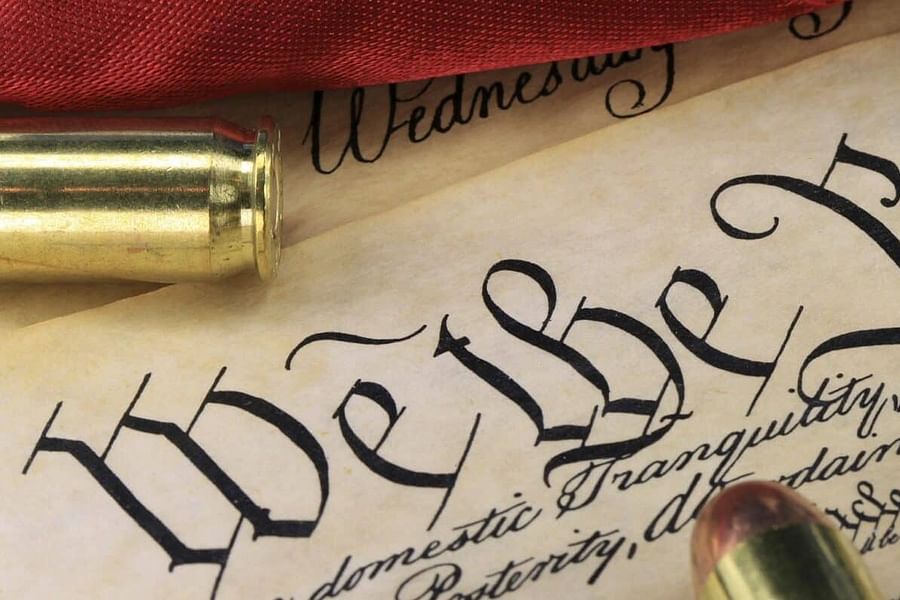 Wednesday
We the P
domestic Tranquility,
Posterity, do ordain